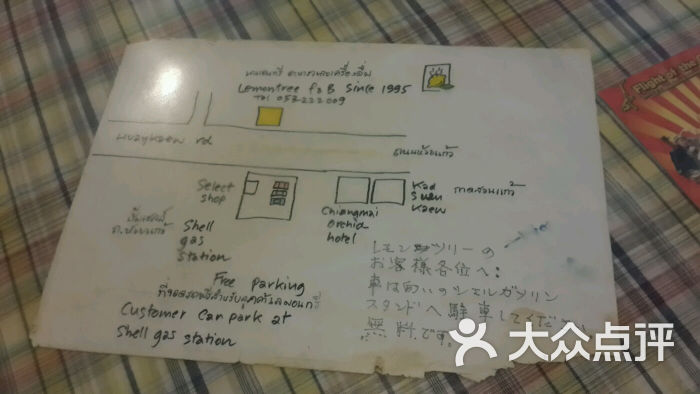 เลมอนทรี อาหารและเครื่องดื่ม
Lemontree F&B Since 1995
Tel 053-222009
Huaykaew rd
ถนนห้วยแก้ว
Select
Shop
Shell
gas
Station
Chiangmai
orchid
hotel
Kad
Suan
Kaew
กาดสวนแก้ว
Free parking
ที่จอดรถฟรีสำหรับลูกค้าเลมอนทรี
Customer can park at
Shell gas station
レモンツリーの
お客様各位へ:
車は向いのシェルガソリン
スタンドへ駐車してください
無料です
Flight of the
大众点评